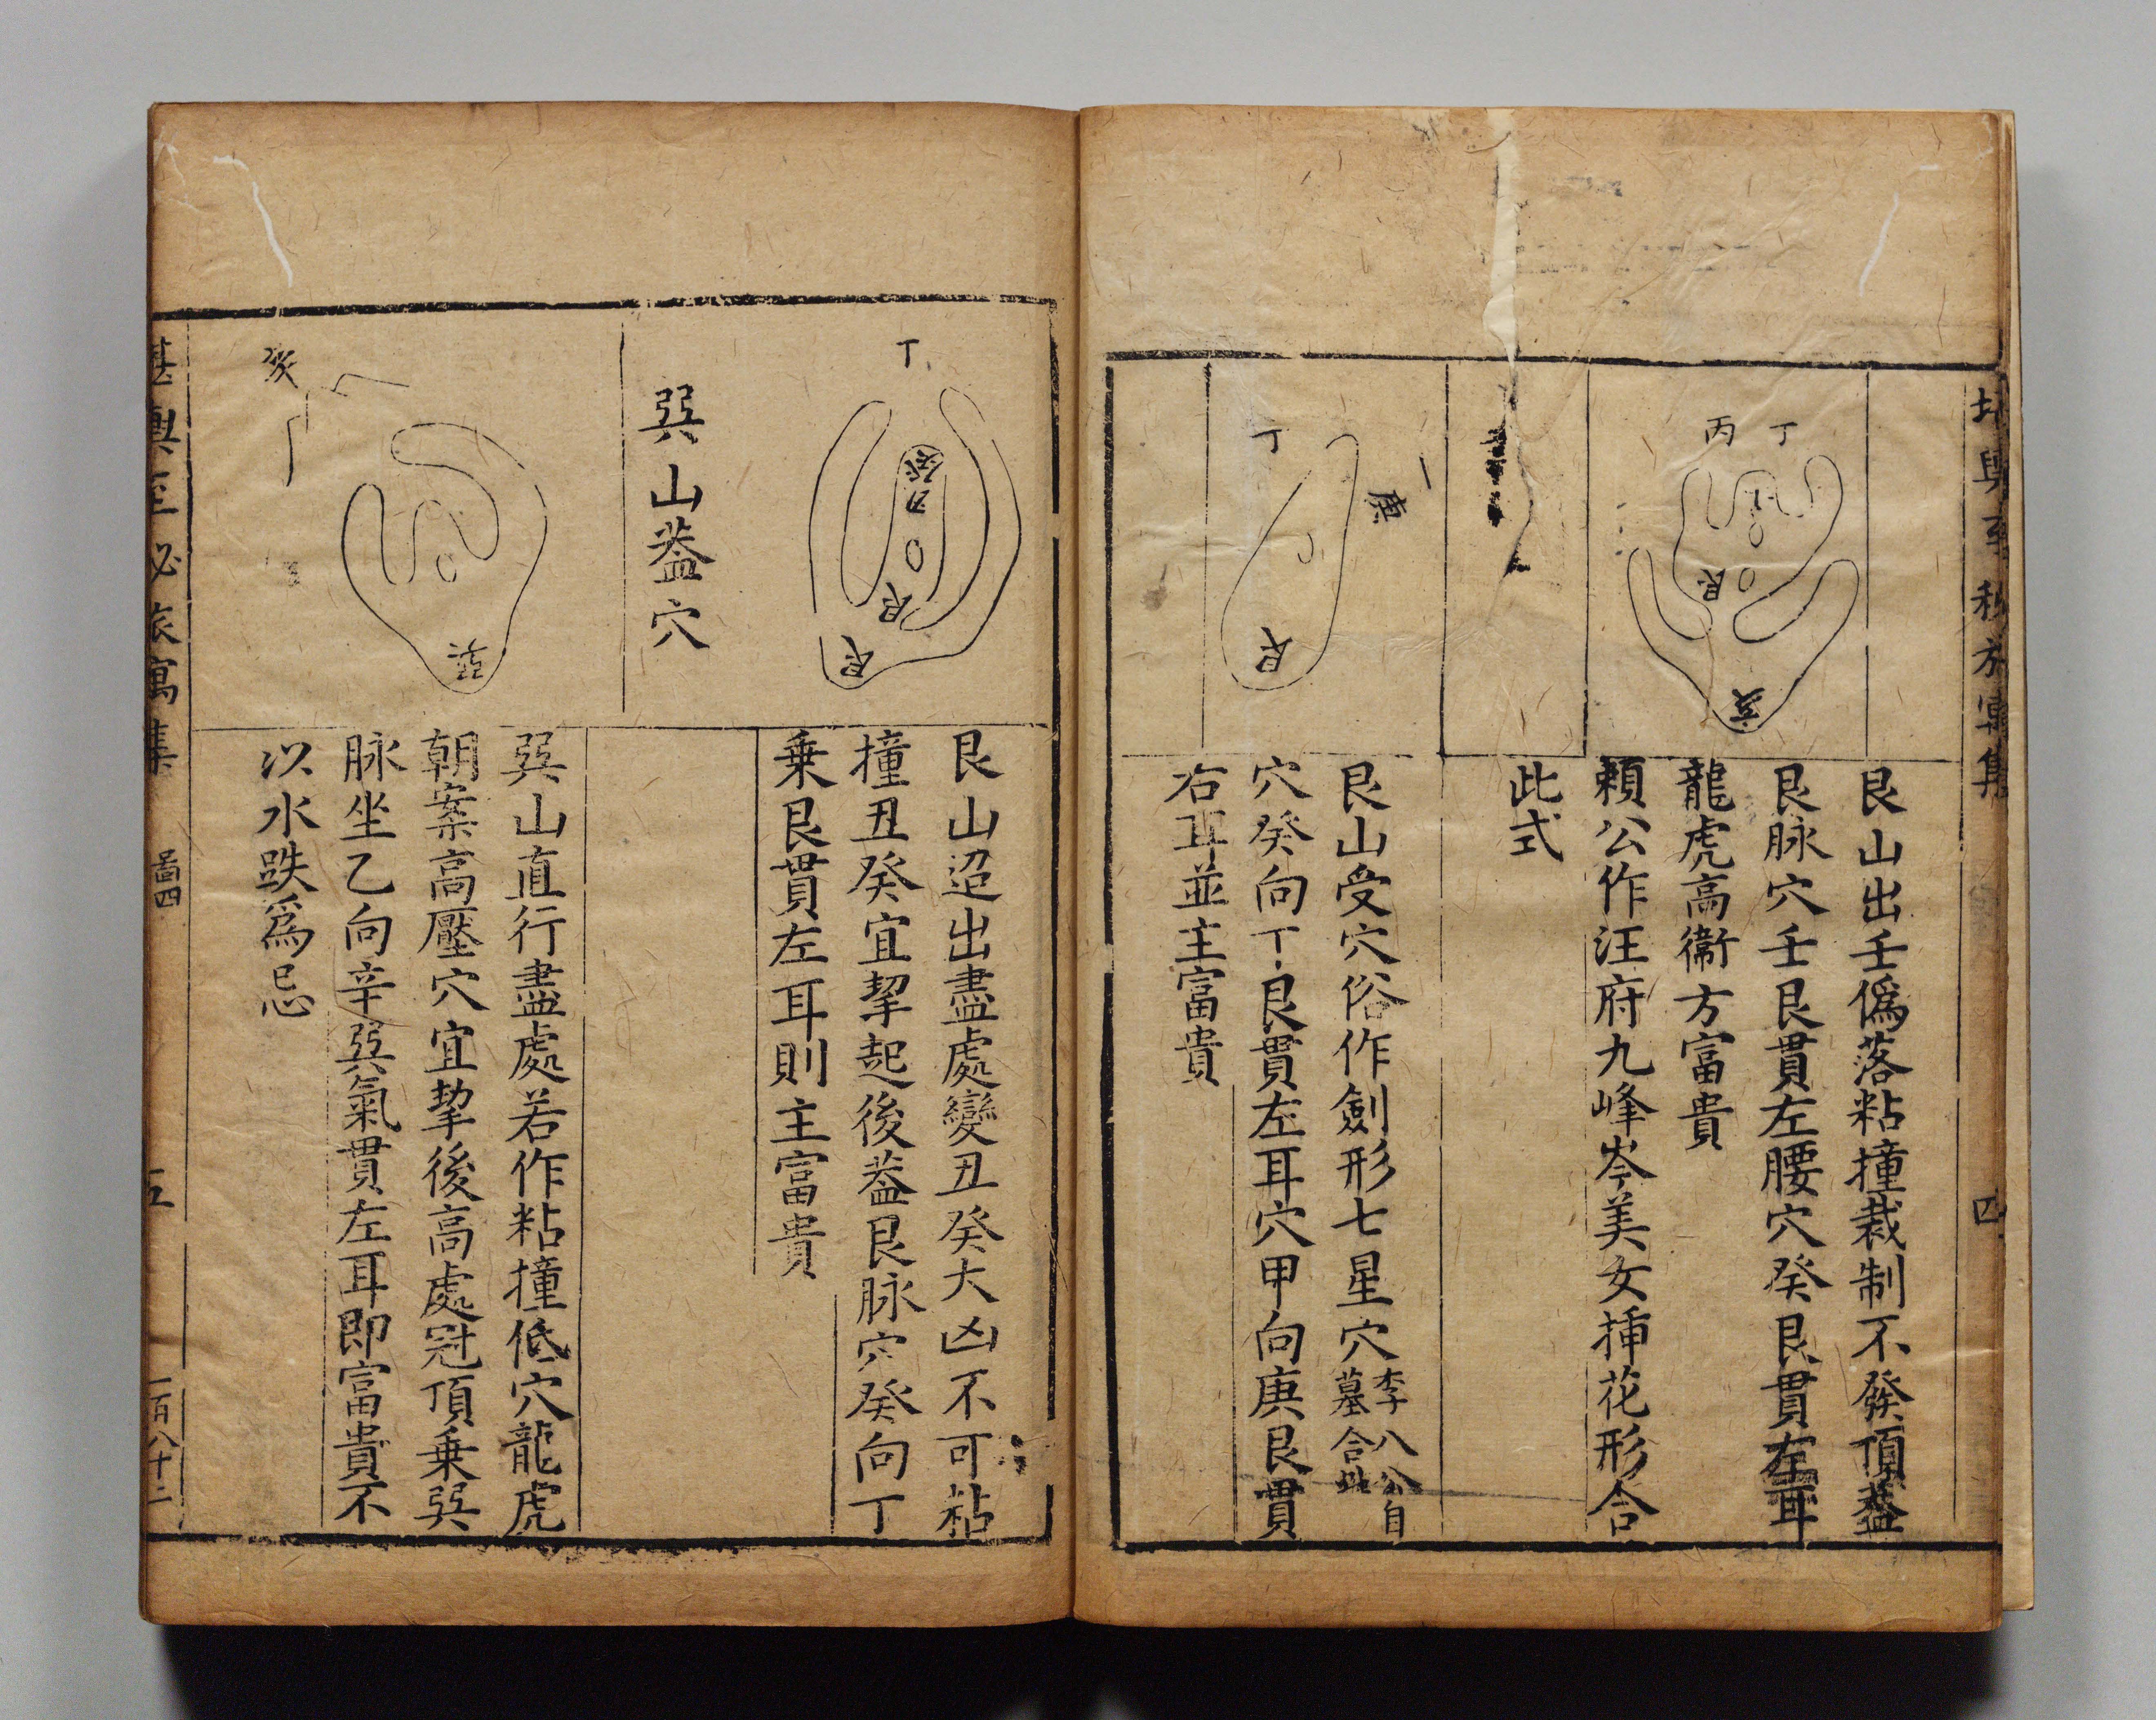 丙 丁
艮
亥
艮山出壬僞落粘撞裁制不發頂蓋
艮脉穴壬艮貫左腰穴癸艮貫左耳
龍虎高衞方富貴
賴公作汪府九峰岺美女揷花形合
此式
丁
庚
艮
艮山受穴俗作劍形七星穴李八公自
墓合此
穴癸向丁艮貫左耳穴甲向庚艮貫
右耳並主富貴
四
丁
癸
丑
艮
艮
艮山迢出盡處變丑癸大凶不可粘
撞丑癸宜挈起後葢艮脉穴癸向丁
乗艮貫左耳則主富貴
巽山葢穴
亥
巽
巽山直行盡處若作粘撞低穴龍虎
朝案高壓穴宜挈後高處冠頂乗巽
脉坐乙向辛巽氣貫左耳即富貴不
以水跌爲忌
堪輿至秘旅寓集 啚四 五 一百八十二